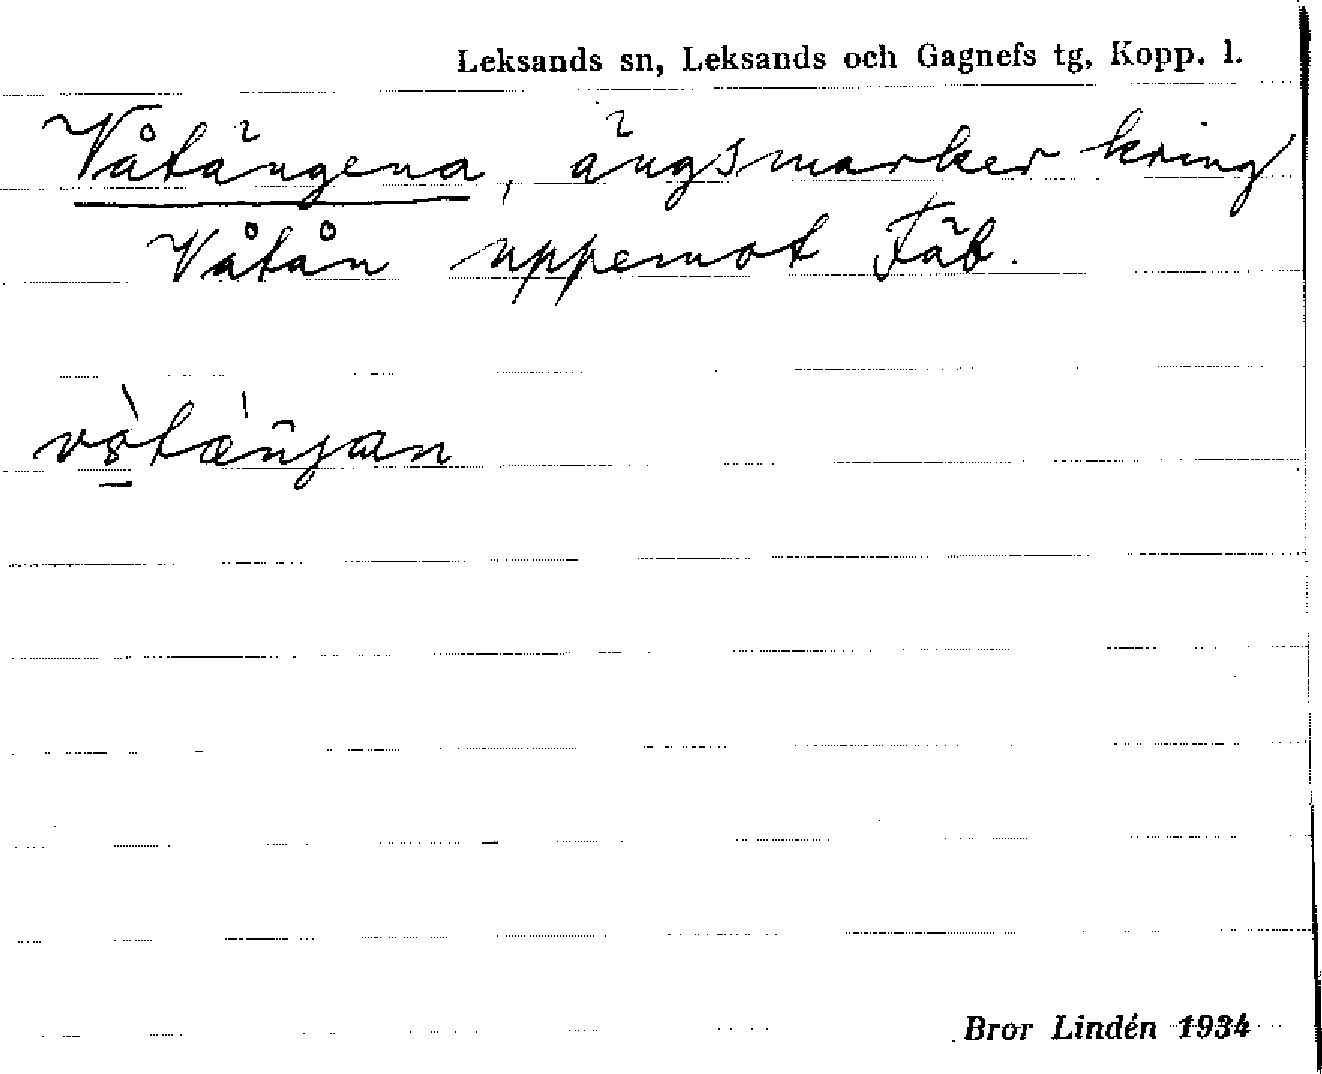 Leksands sn, Leksands och Gagnefs tg, Kopp. l.
Våtängena, ängsmarker kring
Våtån uppemot Fäb.
vò̱tæ̀ŋjan
Bror Lindén 1934